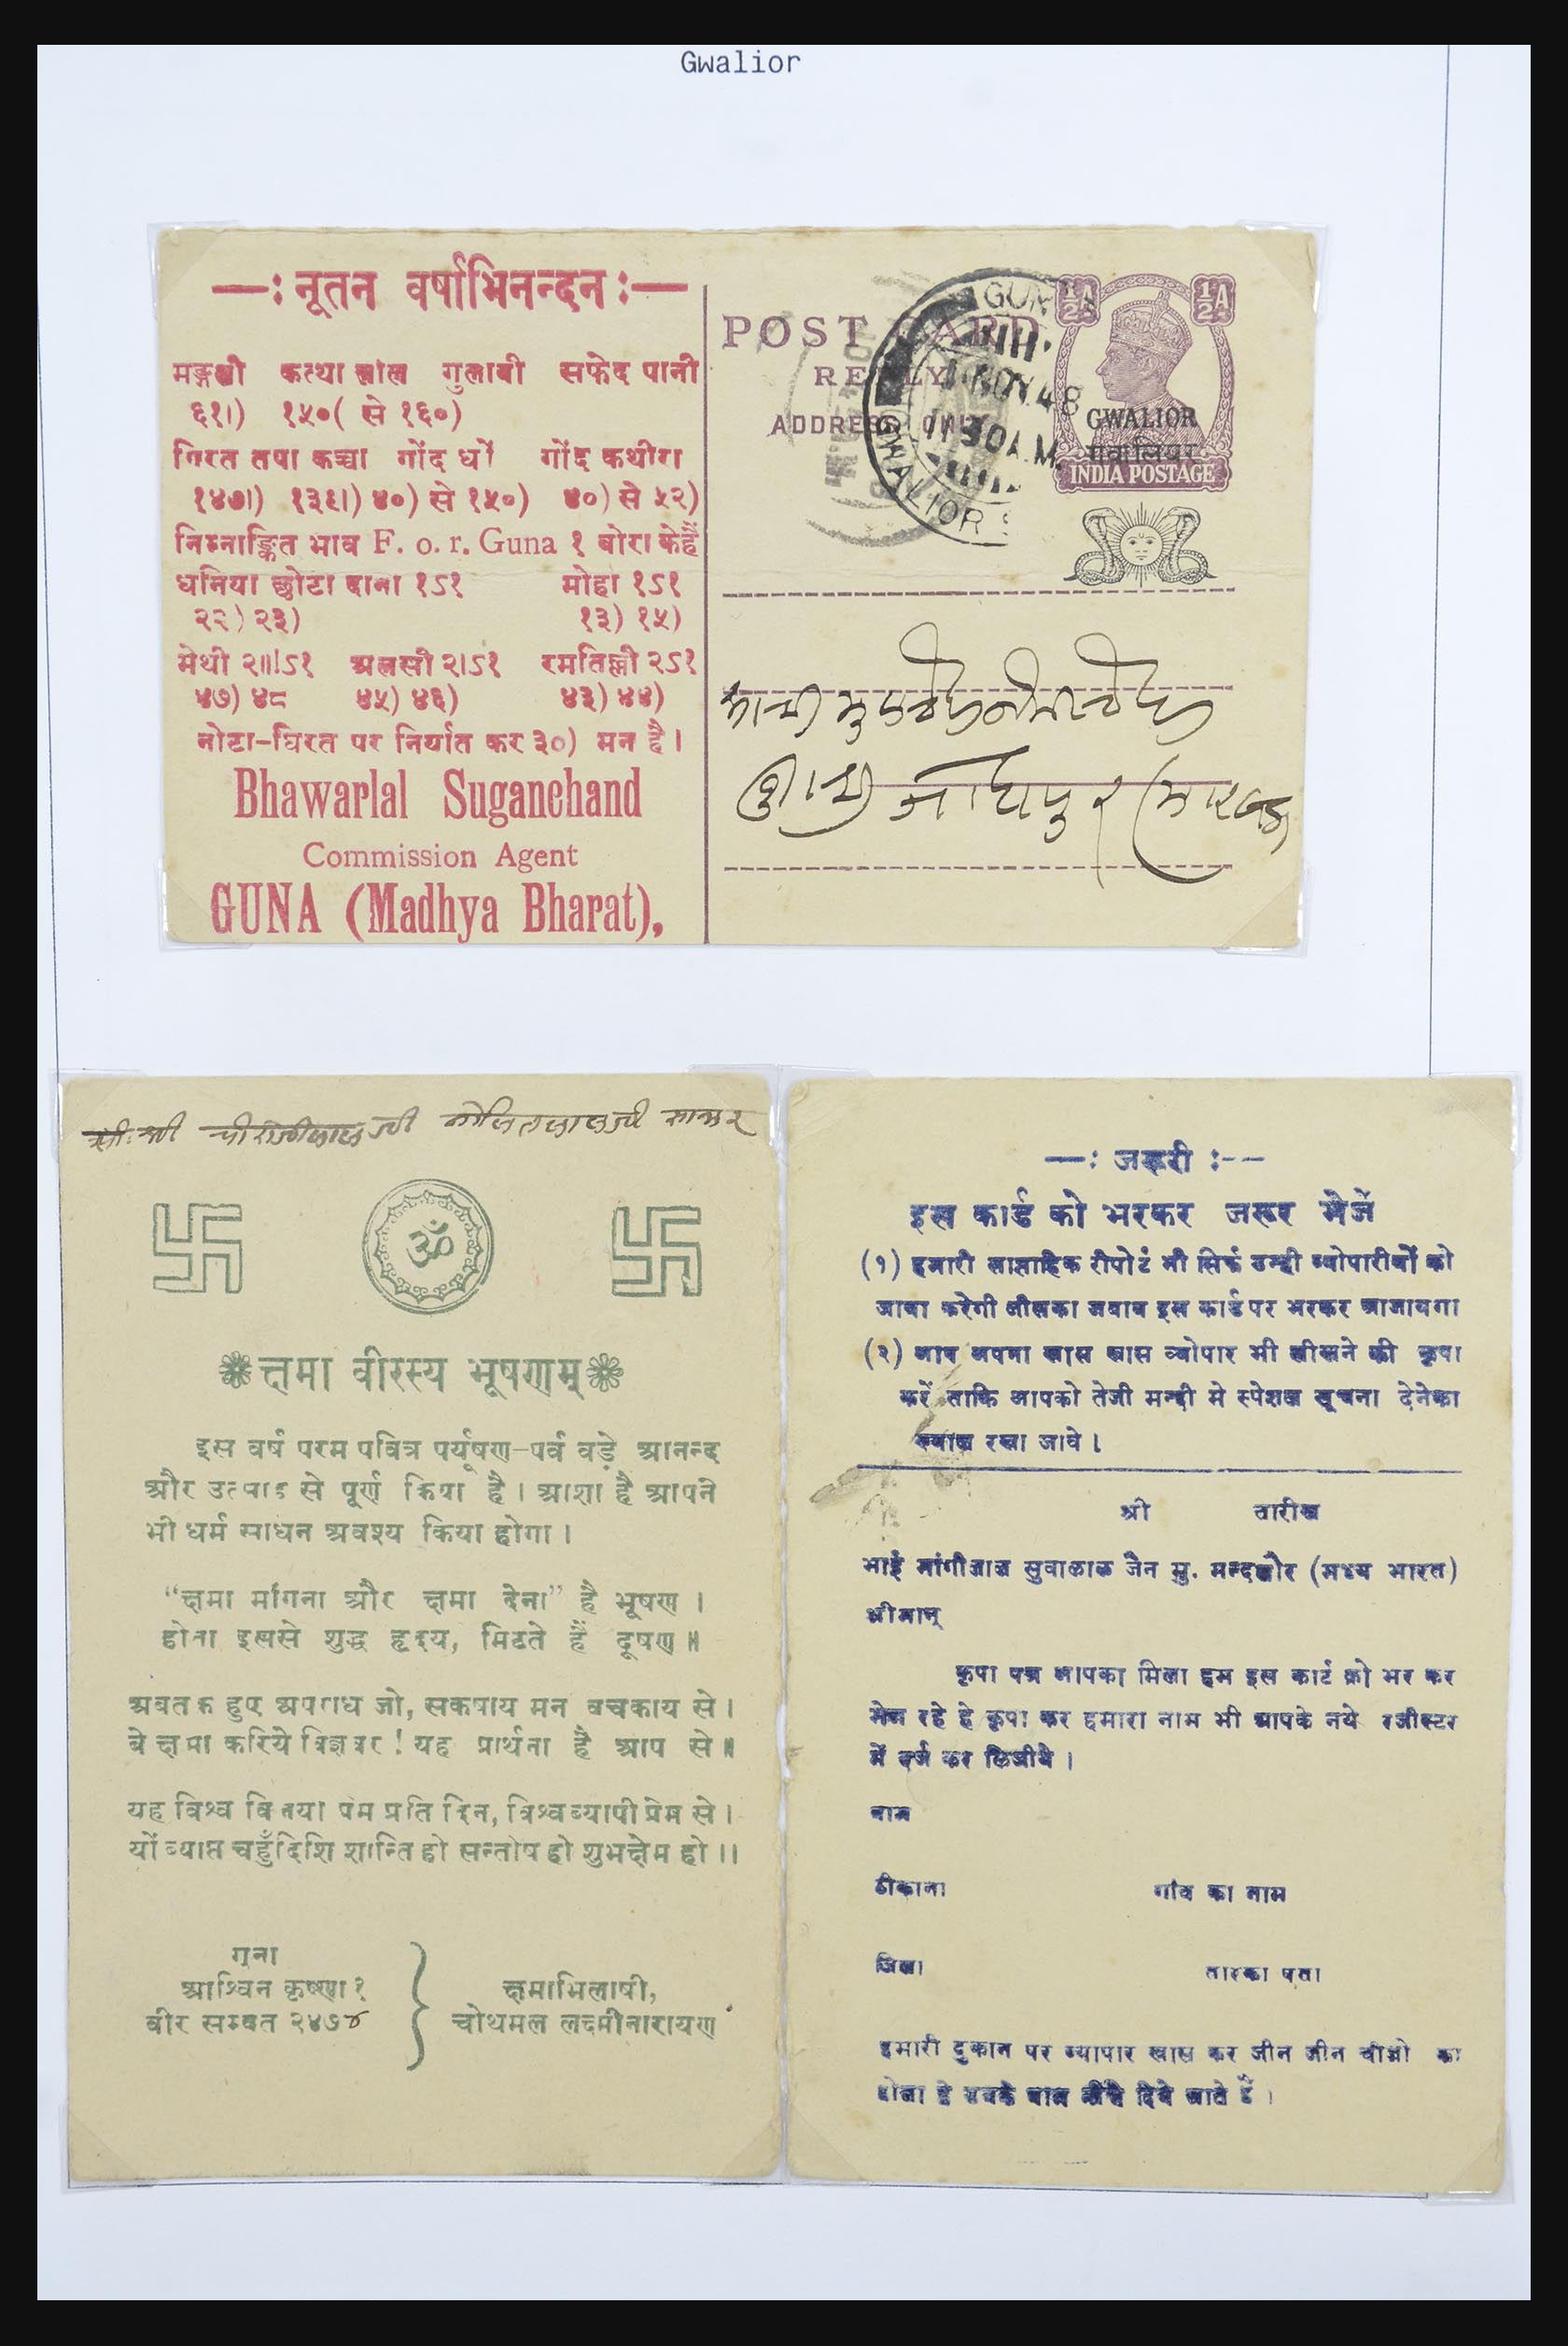 Gwalior
—: नूतन वर्षाभिनन्दन :—
कत्था लाल गुलाबी सफेद पानी
६१।) १५०( से १६०)
गिरत तपा कच्चा गोंद धों गोंद कथीरा
१४७।) १३६।) ४०) से १५०) ४०) से ५२)
निम्नाङ्कित भाव F. o. r. Guna १ बोरा के हैं
धनिया छोटा दाना १ऽ१ मोहा १ऽ१
२२) २३) १३) १५)
मेथी २॥ऽ१ अलसी २।ऽ१ रमतिल्ली २ऽ१
४७) ४८ ४५) ४६) ४३) ४४)
नोटा-घिरत पर निर्यात कर ३०) मन है।
Bhawarlal Suganchand
Commission Agent
GUNA (Madhya Bharat),
POST CARD
REPLY
ADDRESS ONLY
GUNA
NOV. 48
11 30 A.M.
GWALIOR
½A ½A
GWALIOR
गवालियर
INDIA POSTAGE
जोधपुर (मारवाड़
ॐ
क्षमा वीरस्य भूषणम्
इस वर्ष परम पवित्र पर्यूषण-पर्व बड़े आनन्द
और उत्साह से पूर्ण किया है। आशा है आपने
भी धर्म साधन अवश्य किया होगा।
“क्षमा मांगना और क्षमा देना” है भूषण।
होता इससे शुद्ध हृदय, मिटते हैं दूषण॥
अबतक हुए अपराध जो, सकषाय मन वचकाय से।
वे क्षमा करिये विज्ञवर! यह प्रार्थना है आप से॥
यह विश्व प्रति दिन, विश्वव्यापी प्रेम से।
यों व्याप्त चहुँदिशि शान्ति हो सन्तोष हो शुभक्षेम हो।।
गुना
आश्विन कृष्णा १
वीर सम्वत २४७४
क्षमाभिलाषी,
चोथमल लक्ष्मीनारायण
—: जरूरी :--
इस कार्ड को भरकर जरूर भेजें
(१) हमारी साप्ताहिक रीपोर्ट भी सिर्फ उन्ही व्योपारीयों को
जावा करेगी जीसका जवाब इस कार्ड पर भरकर आजायगा
(२) आप अपना खास खास व्योपार भी लीखने की कृपा
करें ताकि आपको तेजी मन्दी मे स्पेशल सूचना देनेका
ख्याल रखा जावे।
श्री तारीख
भाई मांगीलाल सुवालाल जैन मु. मन्दसौर (मध्य भारत)
श्रीमान्
कृपा पत्र आपका मिला हम इस कार्ट को भर कर
भेज रहे हे कृपा कर हमारा नाम भी आपके नये रजीस्टर
में दर्ज कर लिजीये।
नाम
ठीकाना गांव का नाम
जिला तारका पता
हमारी दुकान पर व्यापार खास कर जीन जीन चीजो का
होता हे उनके नाम नीचे दिये जाते हैं।